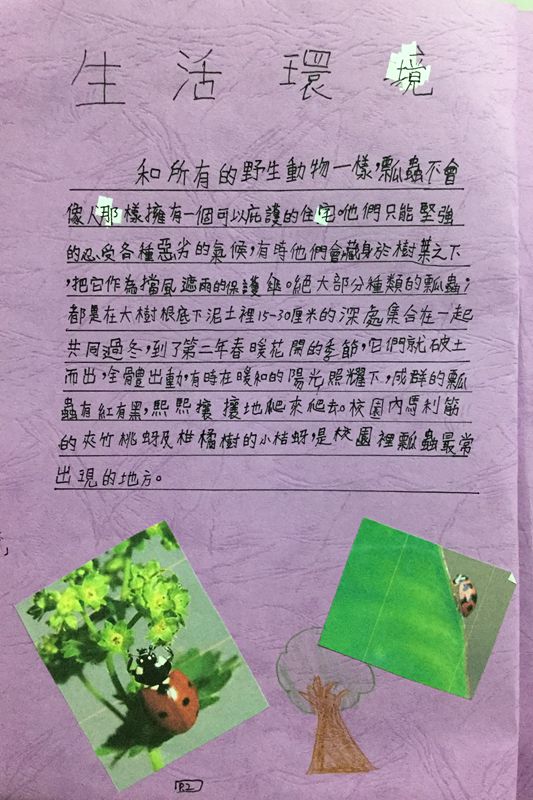 生活環境
和所有的野生動物一樣，瓢蟲不會
像人那樣擁有一個可以庇護的住宅。他們只能堅強
的忍受各種惡劣的氣候，有時他們會藏身於樹葉之下
，把它作為擋風遮雨的保護傘。絕大部分種類的瓢蟲，
都是在大樹根底下泥土裡15-30厘米的深處集合在一起
共同過冬，到了第二年春暖花開的季節，它們就破土
而出，全體出動，有時在暖和的陽光照耀下，成群的瓢
蟲有紅有黑，熙熙攘攘地爬來爬去。校園內馬利筋
的夾竹桃蚜及柑橘樹的小桔蚜，是校園裡瓢蟲最常
出現的地方。
P.2